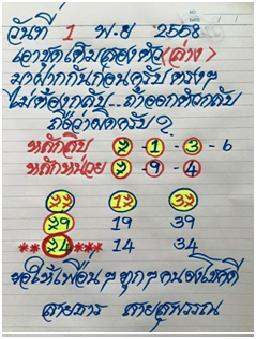 วันที่ 1 พ.ย 2558
เอาชุดเต็มสองตัว(ล่าง)
มาฝากกันก่อนครับ ตรงๆ
ไม่ต้องกลับ...ถ้าออกตัวกลับ
ถือว่าผิดครับ
หลักสิบ 2 - 1 - 3 - 6
หลักหน่วย 2 - 9 - 4
22 12 32
29 19 39
**24*** 14 34
ขอให้เพื่อนๆทุกๆคนโชคดี
สายธาร สายสุพรรณ